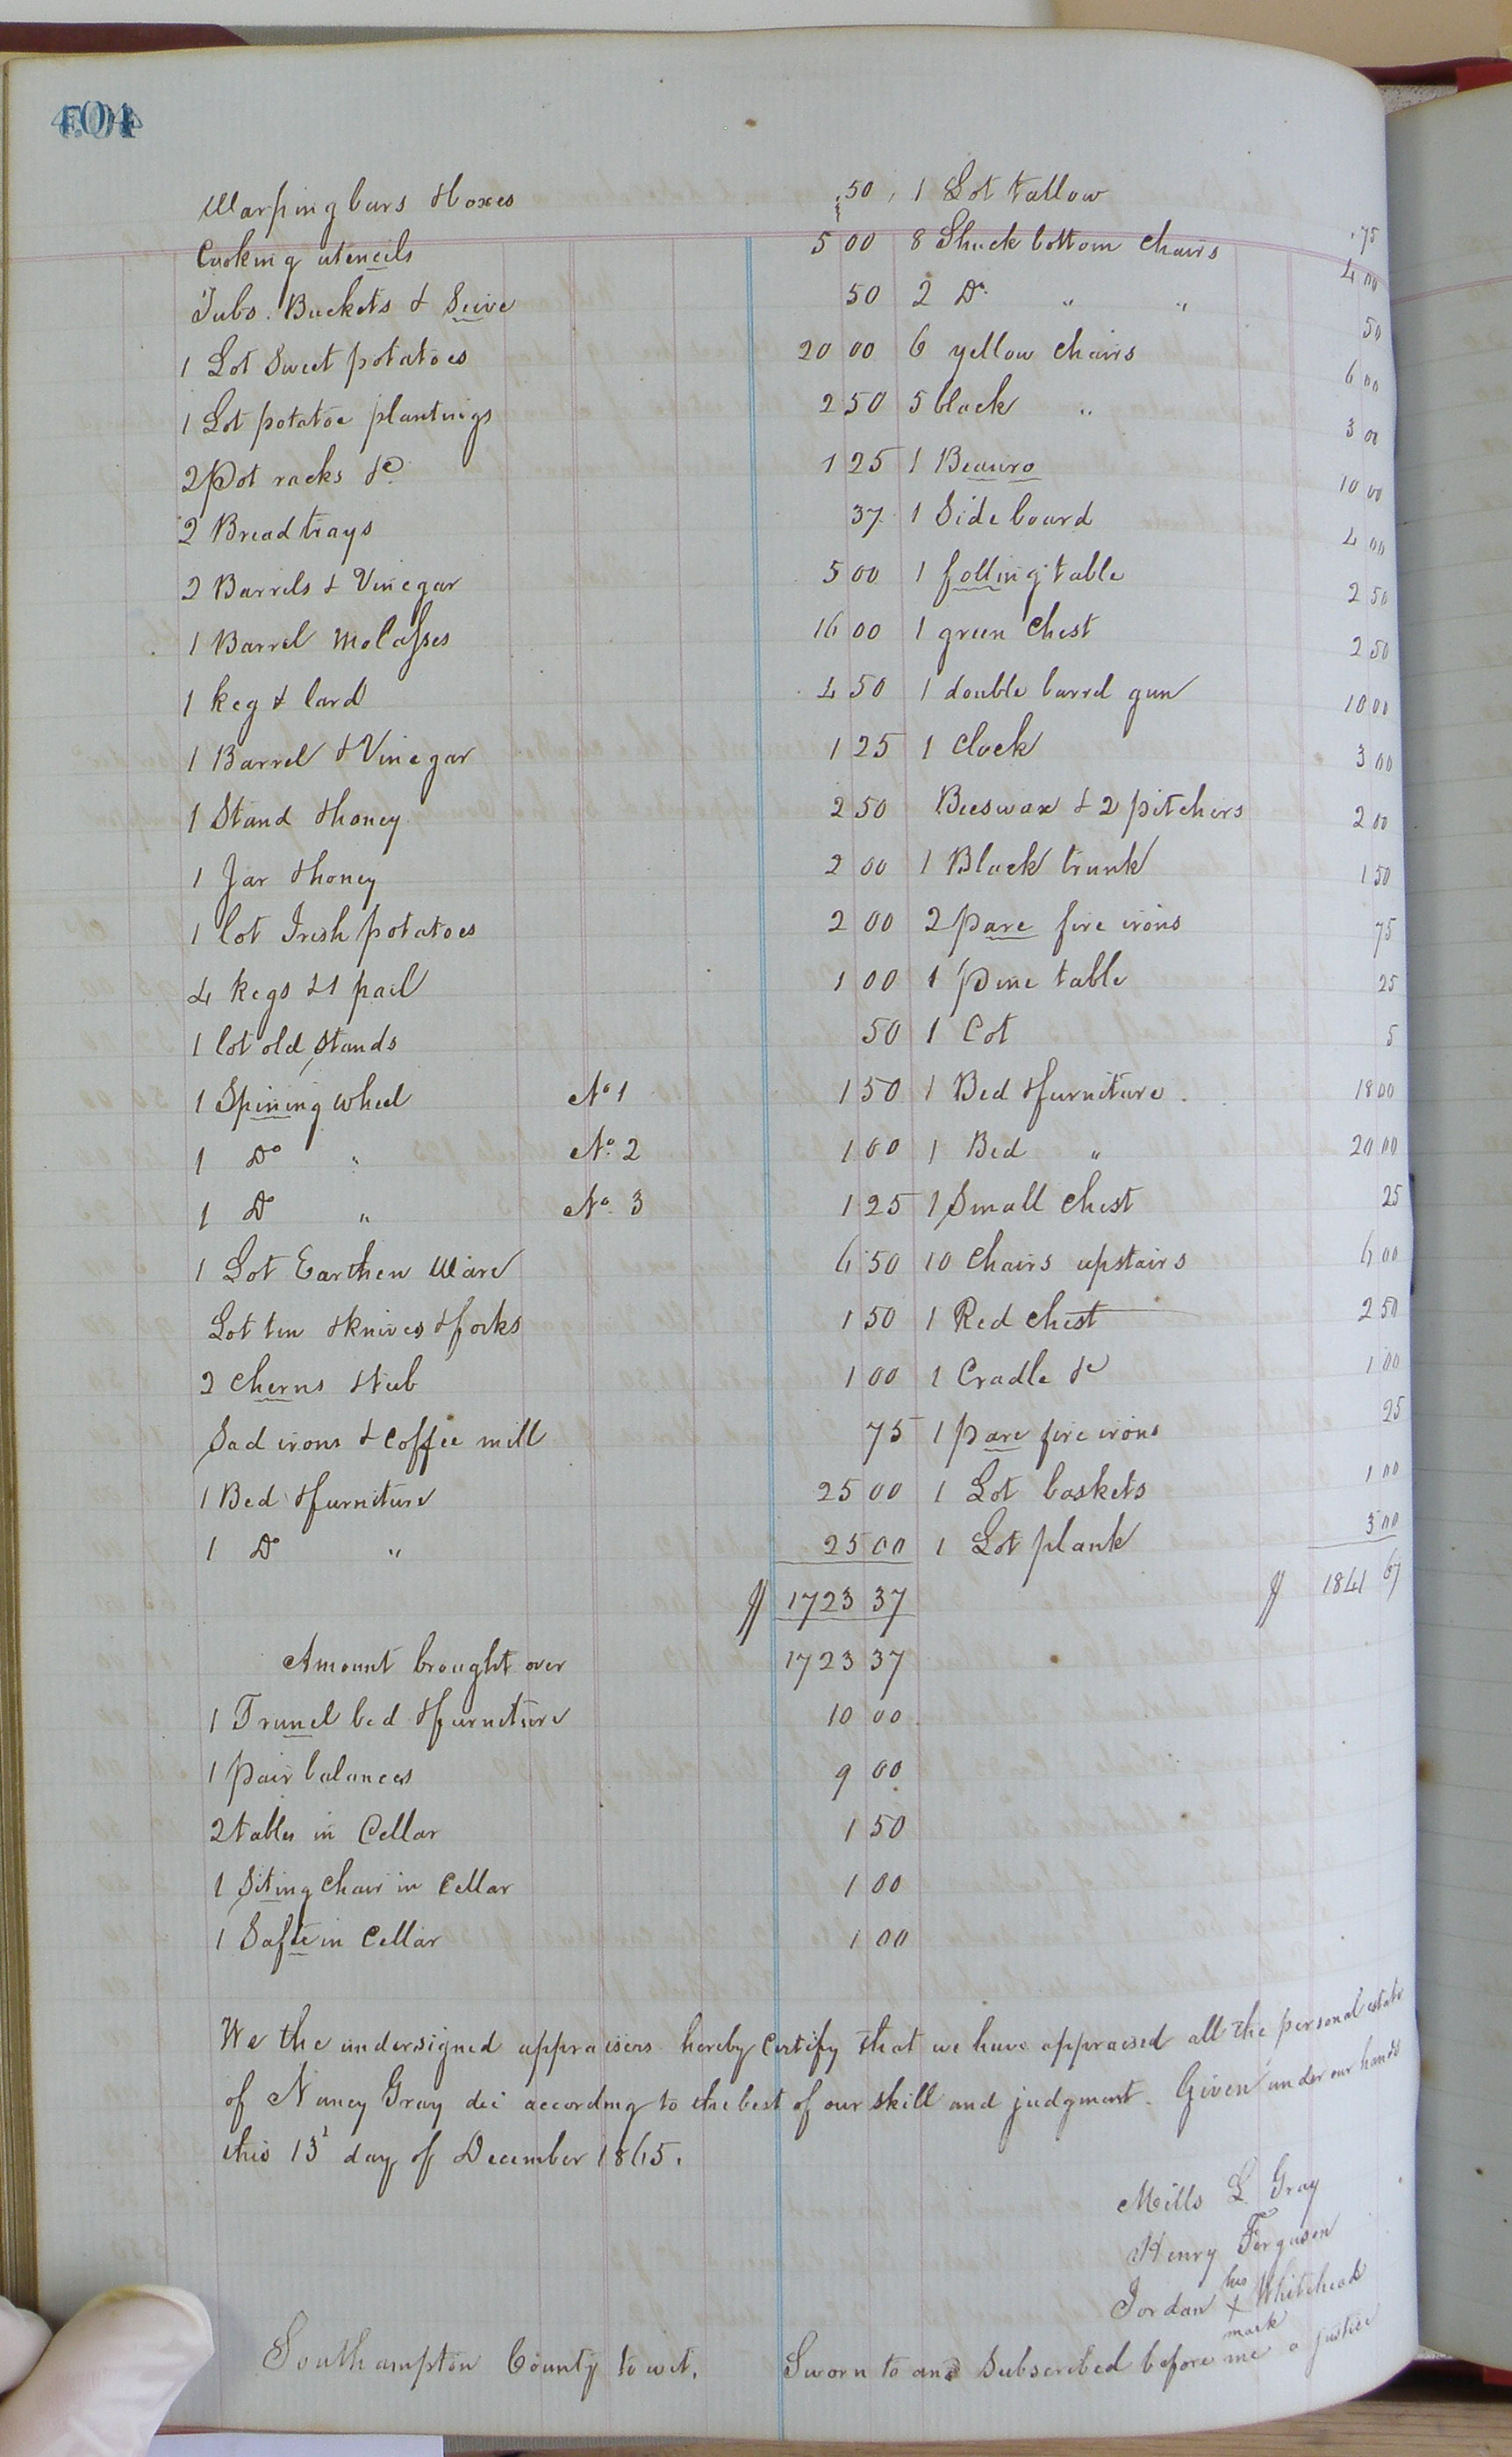 404
Warping bars & boxes 50 1 Lot tallow 75
Cooking utencils 5 00 8 Shuck bottom chairs 4 00
Tubs. Buckets & Seive 50 2 Do " " 50
1 Lot Sweet potatoes 20 00 6 yellow chairs 6 00
1 Lot potatoe plantings 2 50 5 black " 3 00
2 Pot racks &c 1 25 1 Beauro 10 00
2 Bread trays 37 1 Side board 4 00
2 Barrels & Vinegar 5 00 1 folling table 2 50
1 Barrel Molasses 16 00 1 green Chest 2 50
1 keg & lard 4 50 1 double barrel gun 10 00
1 Barrel & Vinegar 1 25 1 Clock 3 00
1 Stand & honey 2 50 Beeswax & 2 pitchers 2 00
1 Jar & honey 2 00 1 Black trunk 1 50
1 lot Irish potatoes 2 00 2 pare fire irons 75
4 kegs & 1 pail 1 00 1 Pine table 25
1 lot old stands 50 1 Cot 5
1 Spining wheel No 1 1 50 1 Bed & furniture 18 00
1 Do " No. 2 1 00 1 Bed " 20 00
1 Do " No. 3 1 25 1 Small Chest 25
1 Lot Earthen Ware 6 50 10 Chairs upstairs 6 00
Lot tin & knives & forks 1 50 1 Red chest 2 50
2 Cherns & tub 1 00 1 Cradle &c 1 00
Sad irons & Coffee mill 75 1 pare fire irons 25
1 Bed & furniture 25 00 1 Lot baskets 1 00
1 Do " 25 00 1 Lot plank 3 00
$ 1723 37 $ 1841 67
Amount brought over 1723 37
1 Trunel bed & furniture 10 00
1 pair balances 9 00
2 tables in Cellar 1 50
1 Siting Chair in Cellar 1 00
1 Safte in Cellar 1 00
We the undersigned appraisers hereby Certify that we have appraised all the personal estate
of Nancy Gray dec according to the best of our skill and judgment. Given under our hands
this 13t day of December 1865.
Mills L. Gray
Henry Ferguson
his
Jordan x Whitehead
mark
Southampton County to wit, Sworn to and Subscribed before me a justice